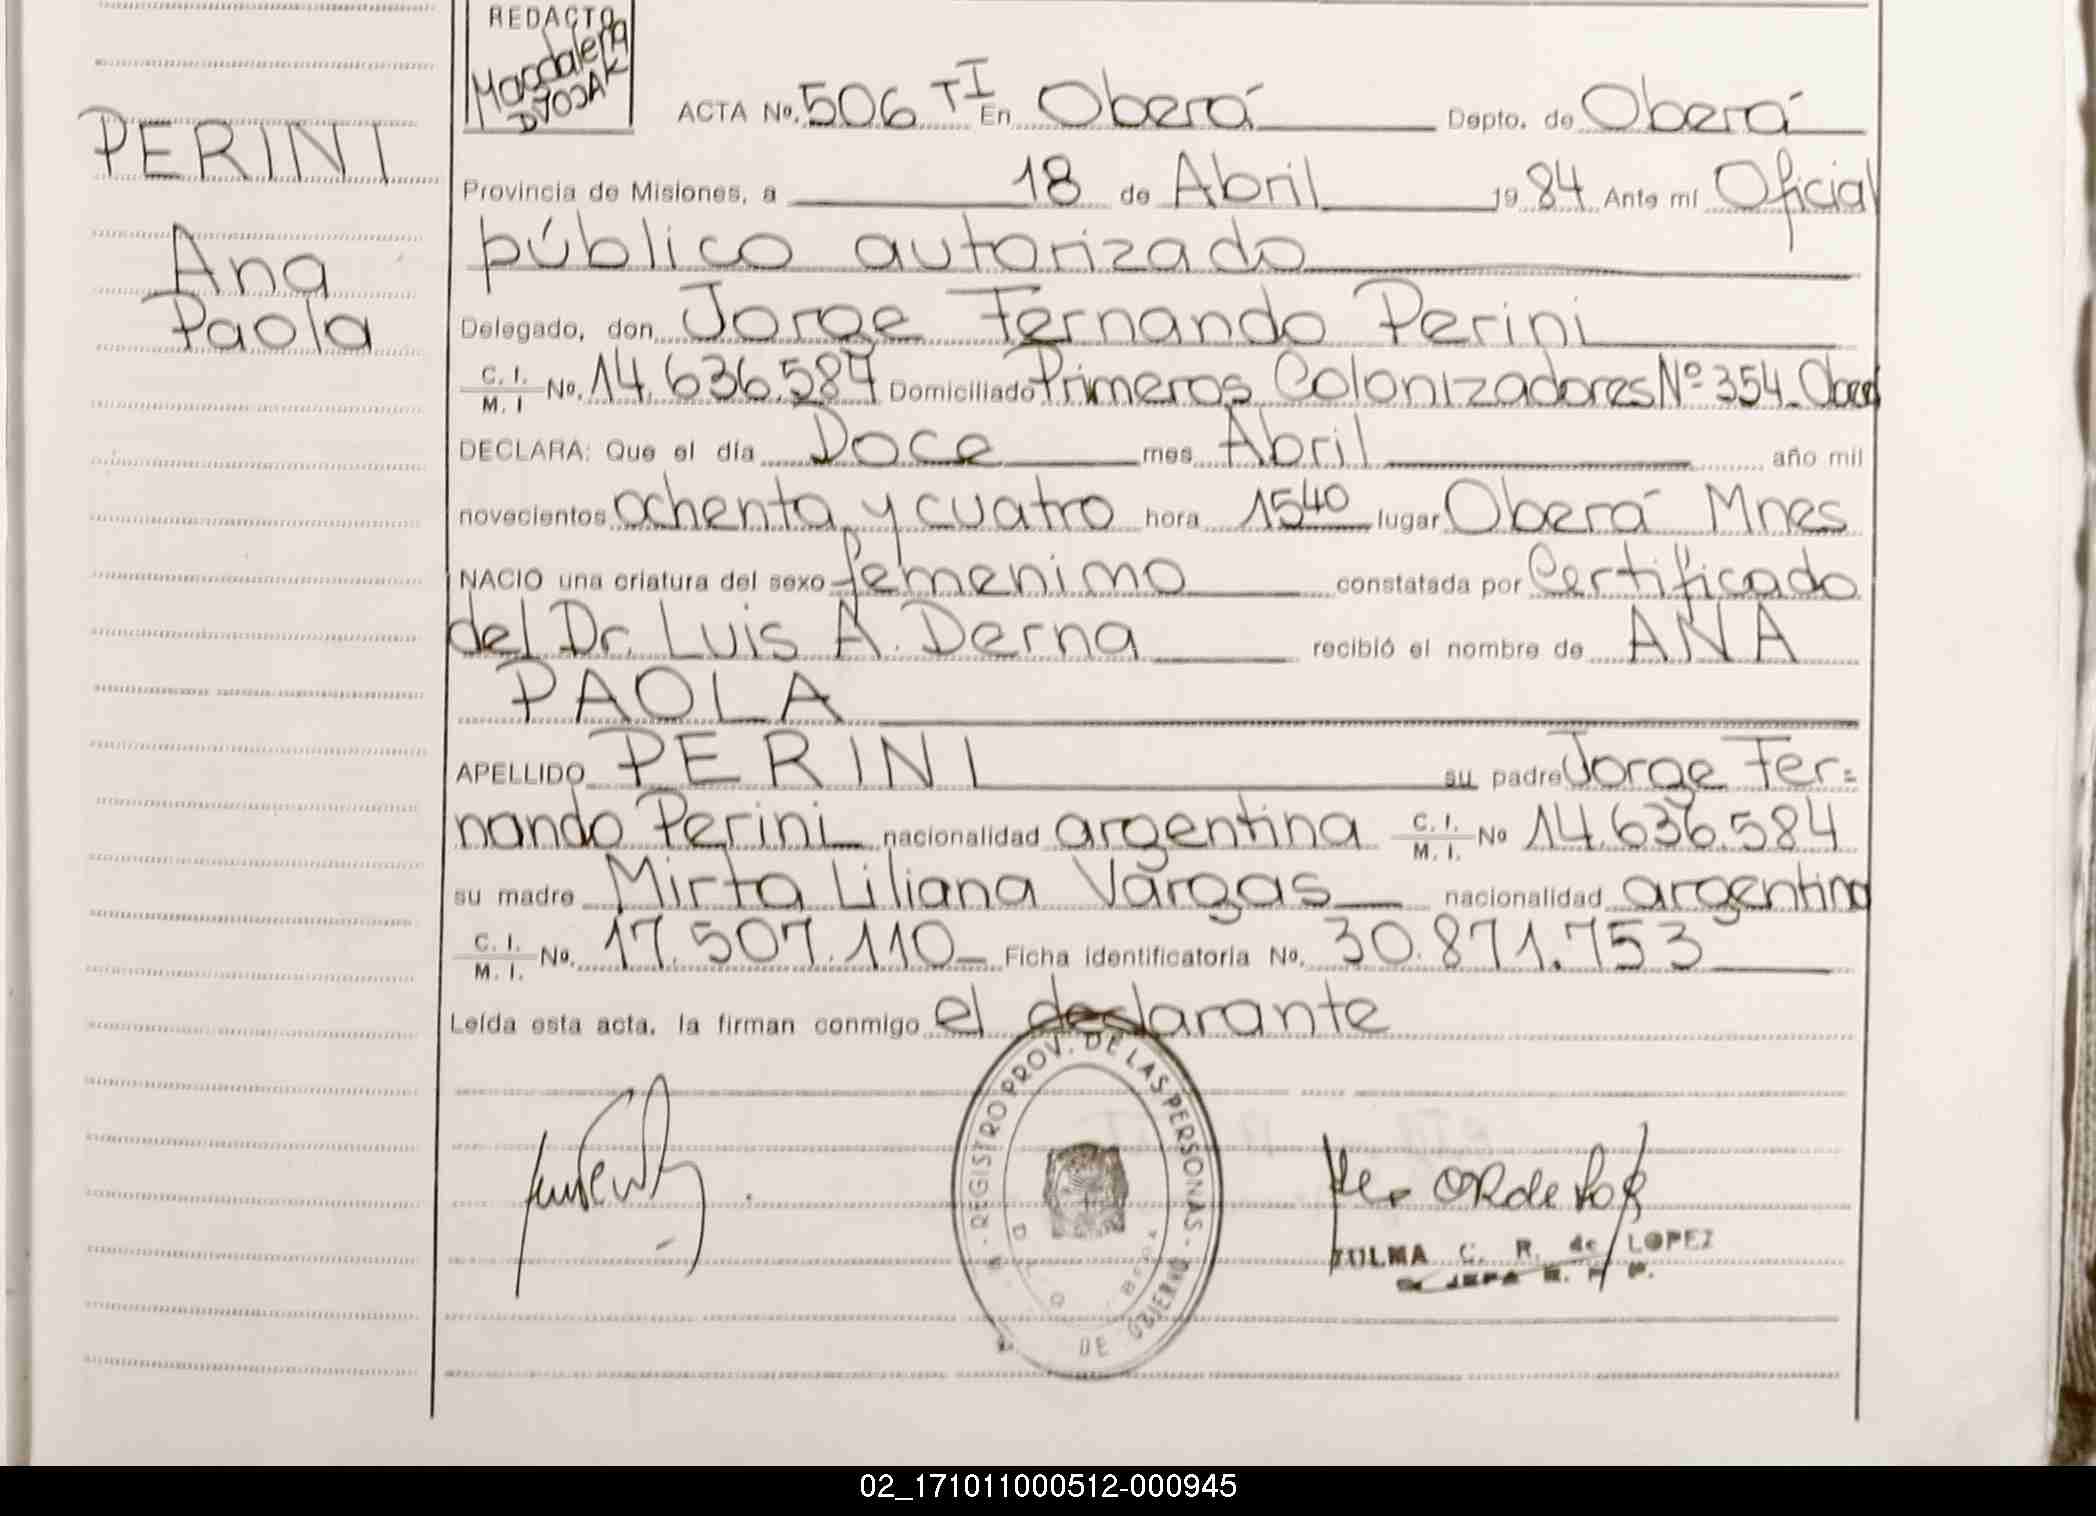 REDACTO
Magdalena
DVOJAK
PERINI
Ana
Paola
ACTA No. 506 TI En Oberá Depto. de Oberá
Provincia de Misiones, a 18 de Abril 1984 Ante mí Oficial
público autorizado
Delegado, don Jorge Fernando Perini
C. I. / M. I No. 14.636.584 Domiciliado Primeros Colonizadores Nº 354_ Oberá
DECLARA: Que el día Doce mes Abril año mil
novecientos ochenta y cuatro hora 15 40 lugar Oberá Mnes
NACIO una criatura del sexo femenino constatada por Certificado
del Dr. Luis A. Derna recibió el nombre de ANA
PAOLA
APELLIDO PERINI su padre Jorge Fer=
nando Perini nacionalidad argentina C. I. / M. I. No 14.636.584
su madre Mirta Liliana Vargas nacionalidad argentina
C. I. / M. I. No. 17.507.110_ Ficha identificatoria No. 30.871.753
Leída esta acta, la firman conmigo el declarante
REGISTRO PROV. DE LAS PERSONAS
DE GOBIERNO
ZULMA C. R. de LOPEZ
02_171011000512-000945